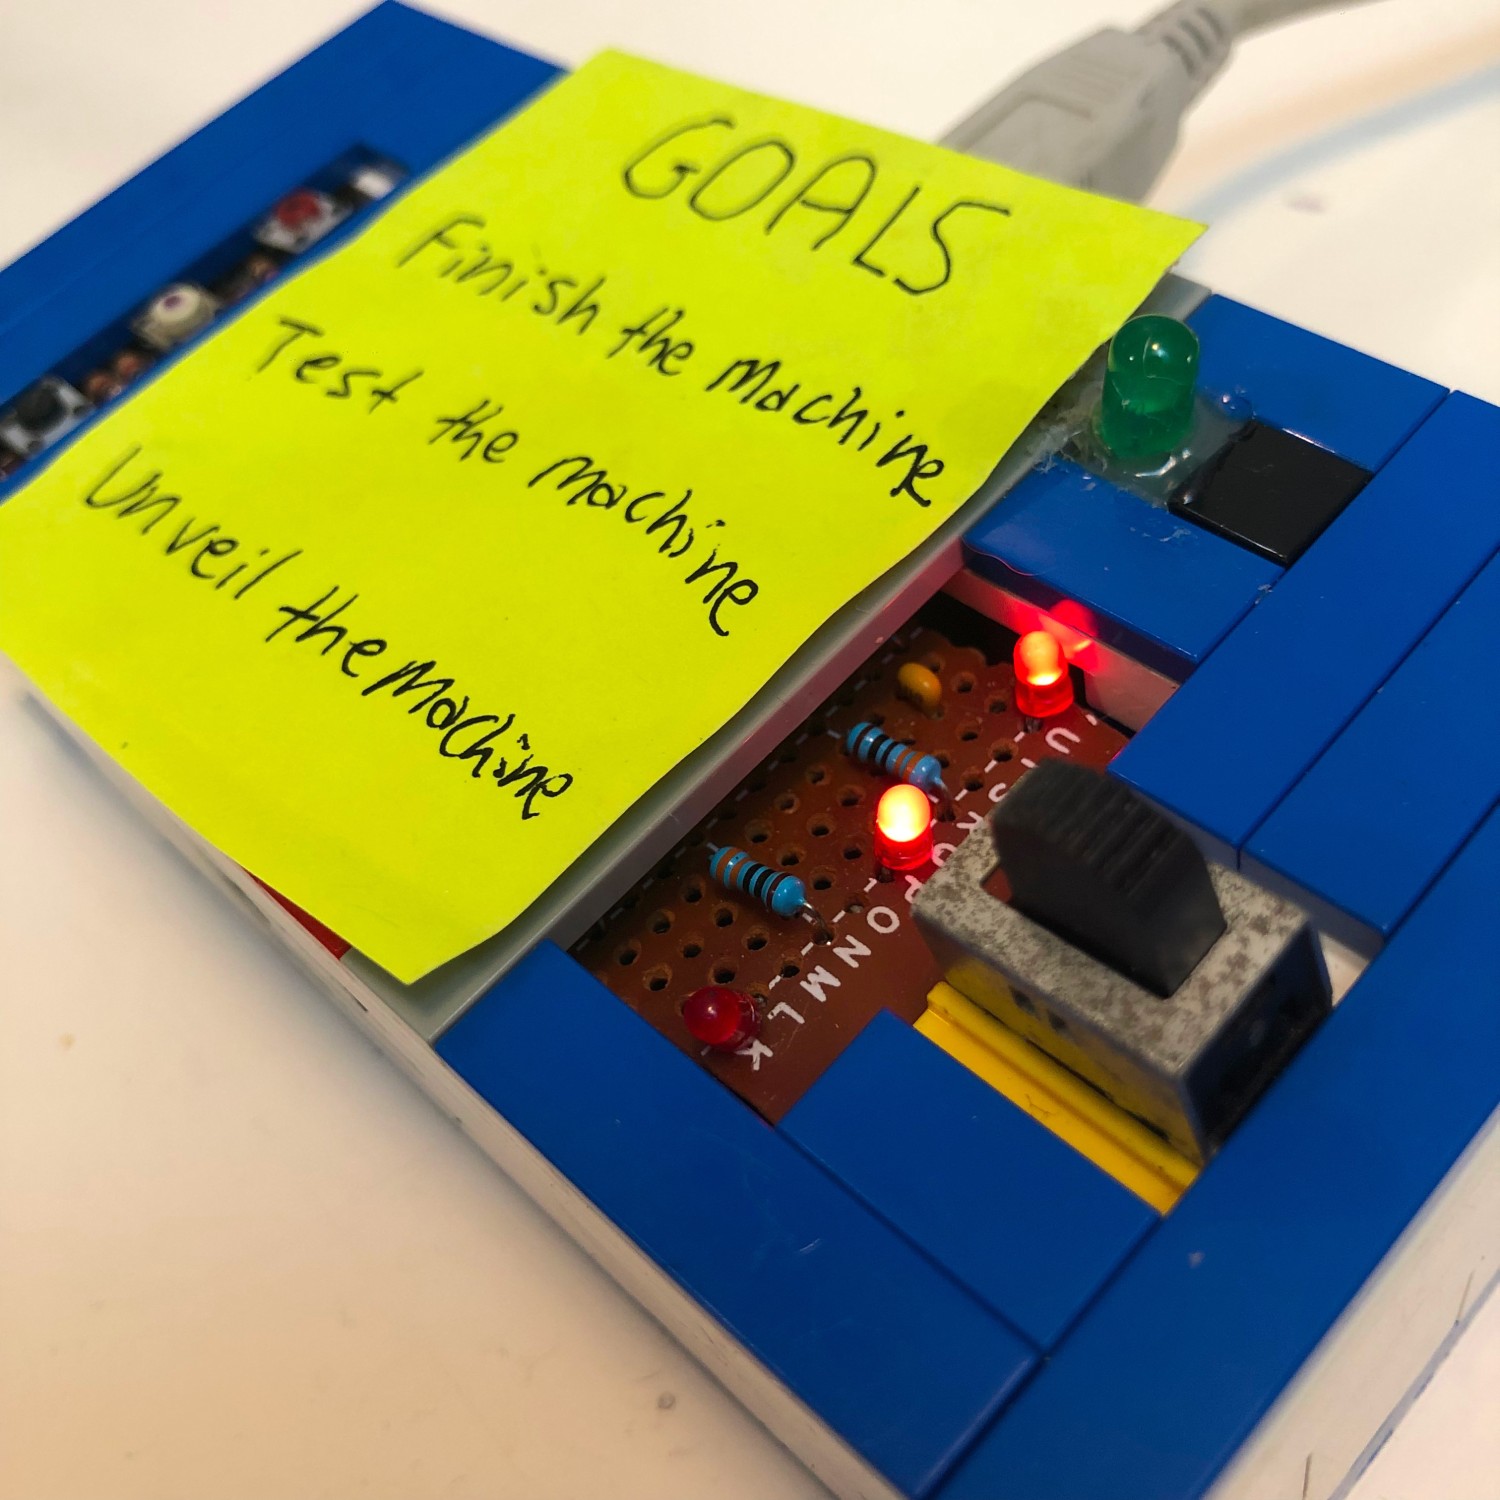 GOALS
Finish the machine
Test the machine
Unveil the machine
U
T
S
R
Q
P
O
N
M
L
K